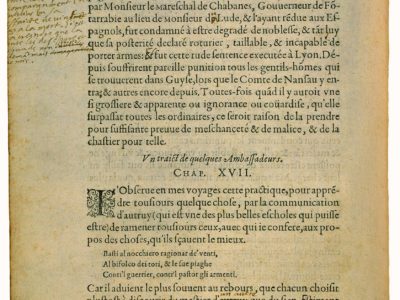 par Monsieur le mareschal de Chabanes, Gouuerneur de Fō-
tarrabie au lieu de Monsieur du Lude, & l'ayant rēdue aux Es-
pagnols, fut condamné à estre degradé de noblesse, & tāt luy
que sa posterité declaré roturier, taillable, & incapable de
porter armes: & fut cette rude sentence executée à Lyon. De-
puis souffrirent pareille punition tous les gentils-hōmes qui
se trouuerent dans Guyse, lors que le Comte de Nansau y en-
tra; & autres encore depuis. Toutes-fois quād il y auroit vne
si grossiere & apparente ou ignorance ou coüardise, qu'elle
surpassat toutes les ordinaires, ce seroit raison de la prendre
pour suffisante preuue de meschanceté & de malice, & de la
chastier pour telle.
Vn traict de quelques Ambassadeurs.
CHAP. XVII.
I'Obserue en mes voyages cette practique, pour appren-
dre tousiours quelque chose, par la communication
d'autruy (qui est vne des plus belles escholes qui puisse
estre) de ramener tousiours ceux, auec qui ie confere, aux pro-
pos des choses, qu'ils sçauent le mieux.
Basti al nocchiero ragionar de' venti,
Al bifolco dei tori, & le sue piaghe
Conti'l guerrier, conti'l pastor gli armenti.
Car il aduient le plus souuent au rebours, que chacun choisit
plustost à discourir du mestier d'autruy que du sien. Estimant